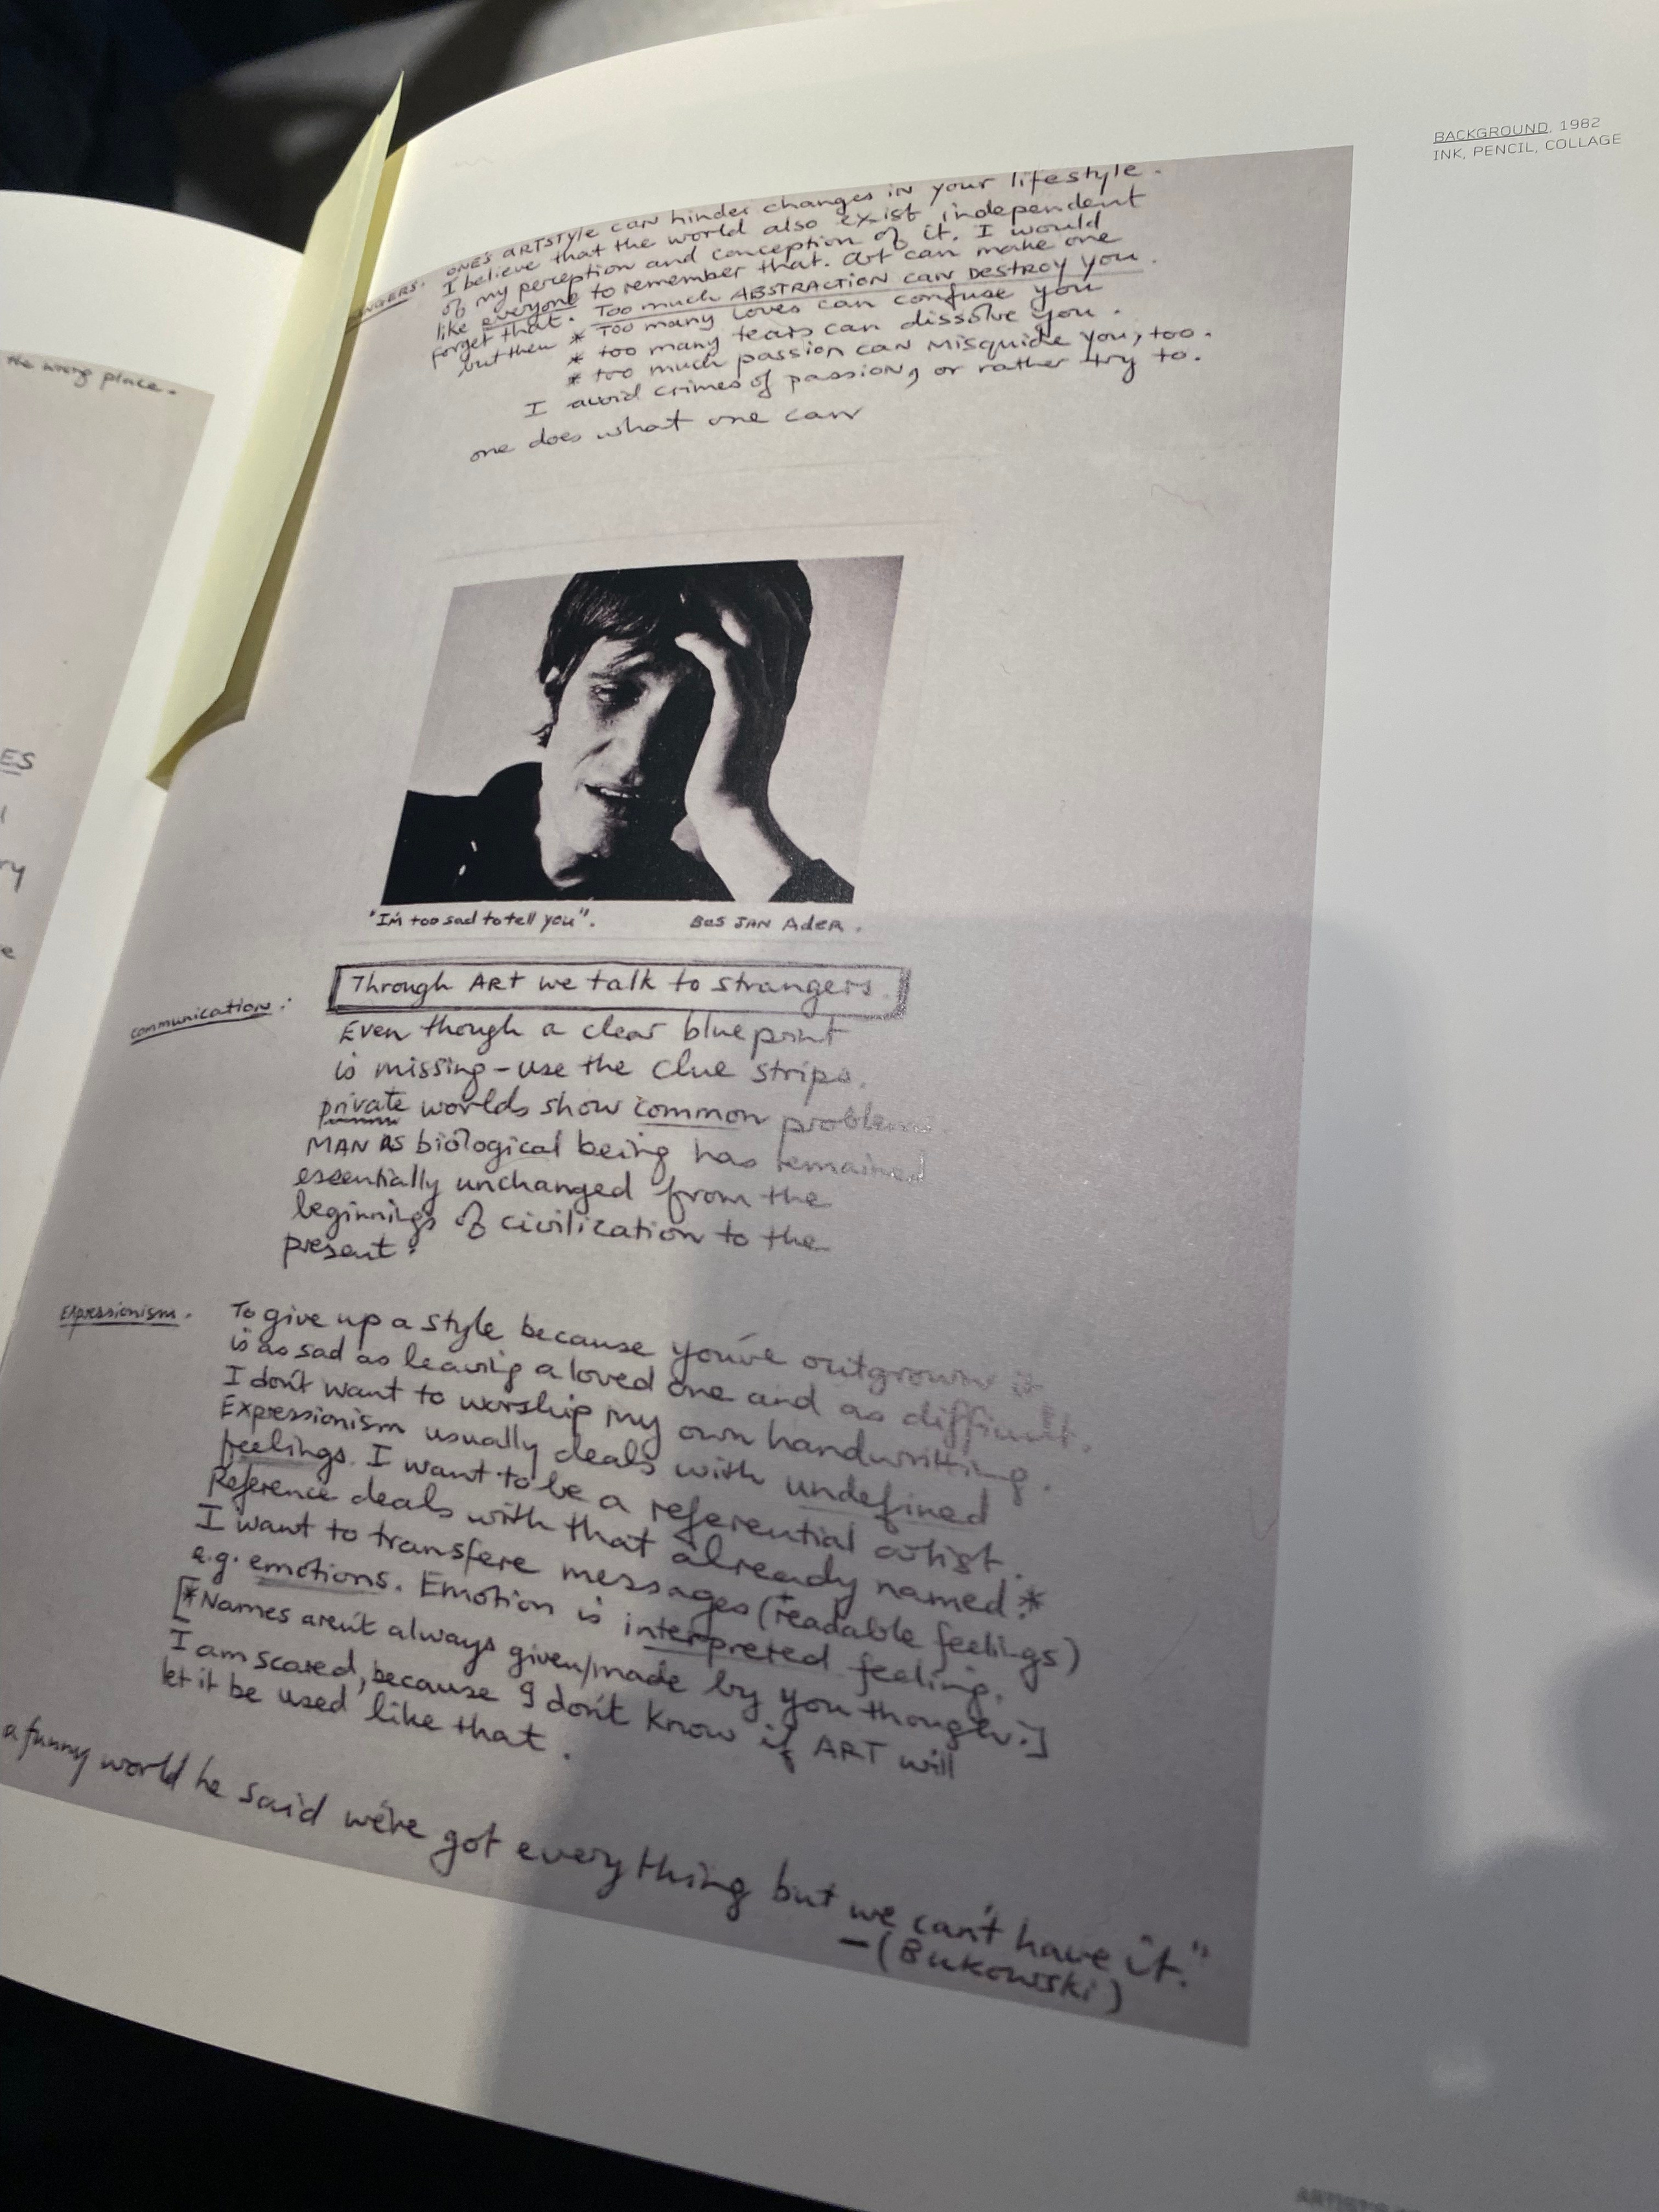 BACKGROUND, 1982
INK, PENCIL, COLLAGE
the wrong place.
ES
ry
e
ONE'S ARTSTYLE CAN hinder changes iN your lifestyle.
I believe that the world also exist independent
of my perception and conception of it. I would
like everyone to remember that. Art can make one
forget that. Too much ABSTRACTION CAN DESTROY you.
but then * Too many loves can confuse you
* too many tears can dissolve you.
* too much passion can misguide you, too.
I avoid crimes of passion, or rather try to.
one does what one can
"I'm too sad to tell you". Bas JAN AdeR.
communication: Through ART we talk to strangers.
Even though a clear blueprint
is missing - use the clue strips.
private worlds show common problems.
MAN AS biological being has remained
essentially unchanged from the
beginnings of civilization to the
present.
Expressionism. To give up a style because you've outgrown it
is as sad as leaving a loved one and as difficult.
I don't want to worship my own handwritting.
Expressionism usually deals with undefined
feelings. I want to be a referential artist.
Reference deals with that already named.*
I want to transfere messages (readable feelings)
e.g. emotions. Emotion is interpreted feeling.
[*Names aren't always given/made by you though.]
I am scared, because I don't know if ART will
let it be used like that.
a funny world he said we've got everything but we can't have it."
-(Bukowski)